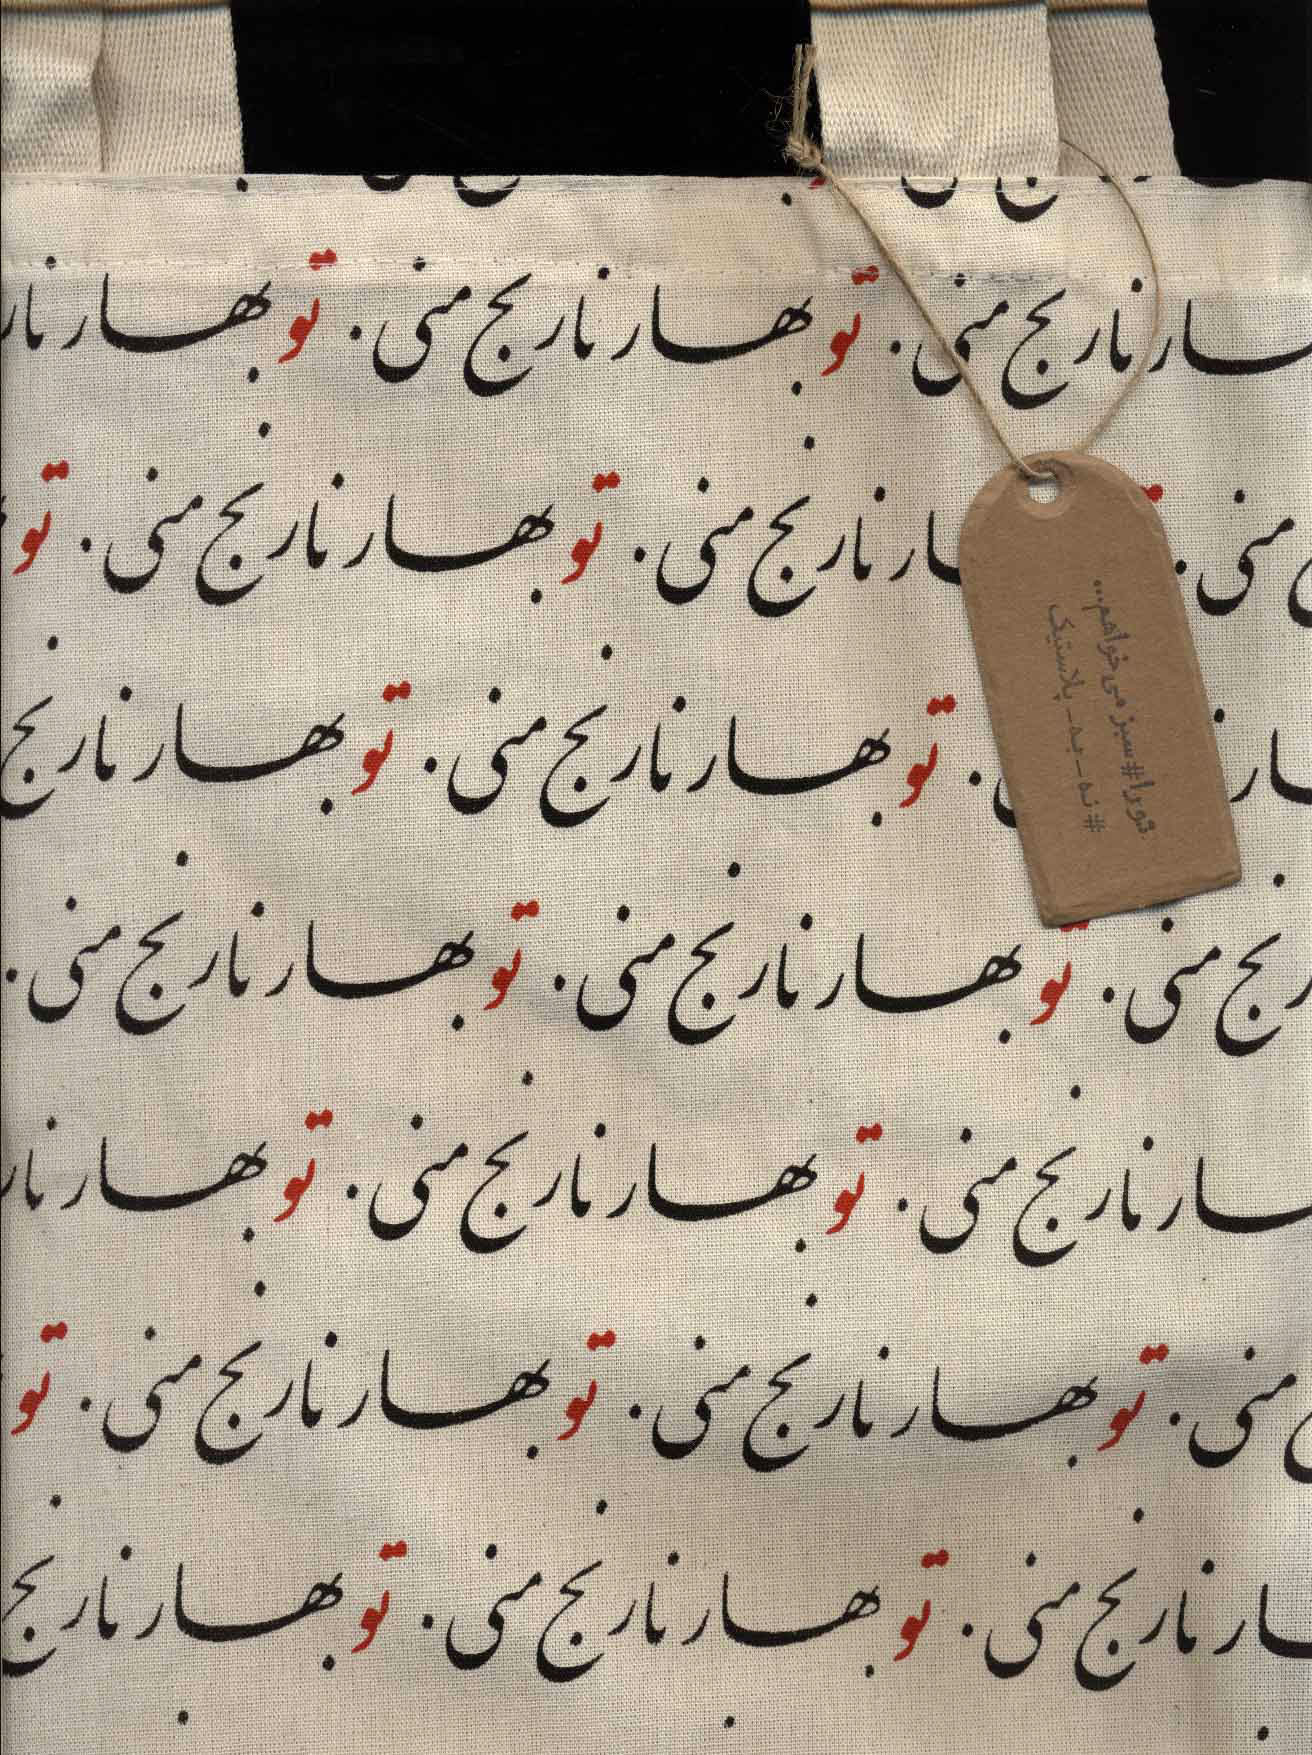 نارنج منی. تو بهار نارنج منی. تو بهار
منی. نارنج منی. تو بهار نارنج منی. تو
تو بهار نارنج منی. تو بهار نارنج
منی. تو بهار نارنج منی. تو بهار نارنج منی.
نارنج منی. تو بهار نارنج منی. تو بهار
منی. تو بهار نارنج منی. تو بهار نارنج منی. تو
نارنج منی. تو بهار نارنج منی. تو بهار نارنج
تورا #سبز می‌خواهم...
#نه_به_پلاستیک